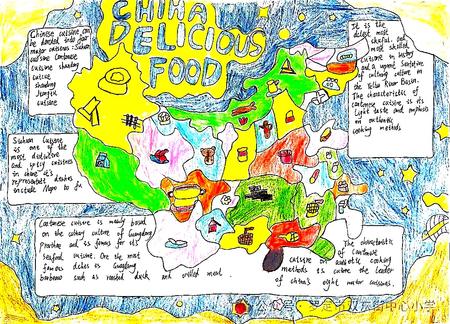 CHINA
DELICIOUS
FOOD
Chinese cuisine can
be divided into four
major cuisines: Sichuan
cuisine Cantonese
cuisine shandong
cuisine
shandong
Jiangsu
cuisine
Sichuan Cuisine
is one of the
most distinctive
and spicy cuisines
in china it's
representative dishes
include Mapo to fu
Cantonese cuisine is mainly based
on the culinary culture of Guangdong
Province and is famous for its
seafood cuisine. One the most
famous dishes is Guangdong
barbecue such as roasted duck and grilled meat.
It is the
oldest most
skillful and
most skilled
cuisine in history
and a worn
of culinary culture in
the Yellow River Basin.
The characteristic of
cantonese cuisine is its
light taste and emphasis
on authentic
cooking methods.
The characteristic
of Cantonese
cuisine on authentic cooking
methods is cuisine the leader
of china's eight major cuisines.
中心小学